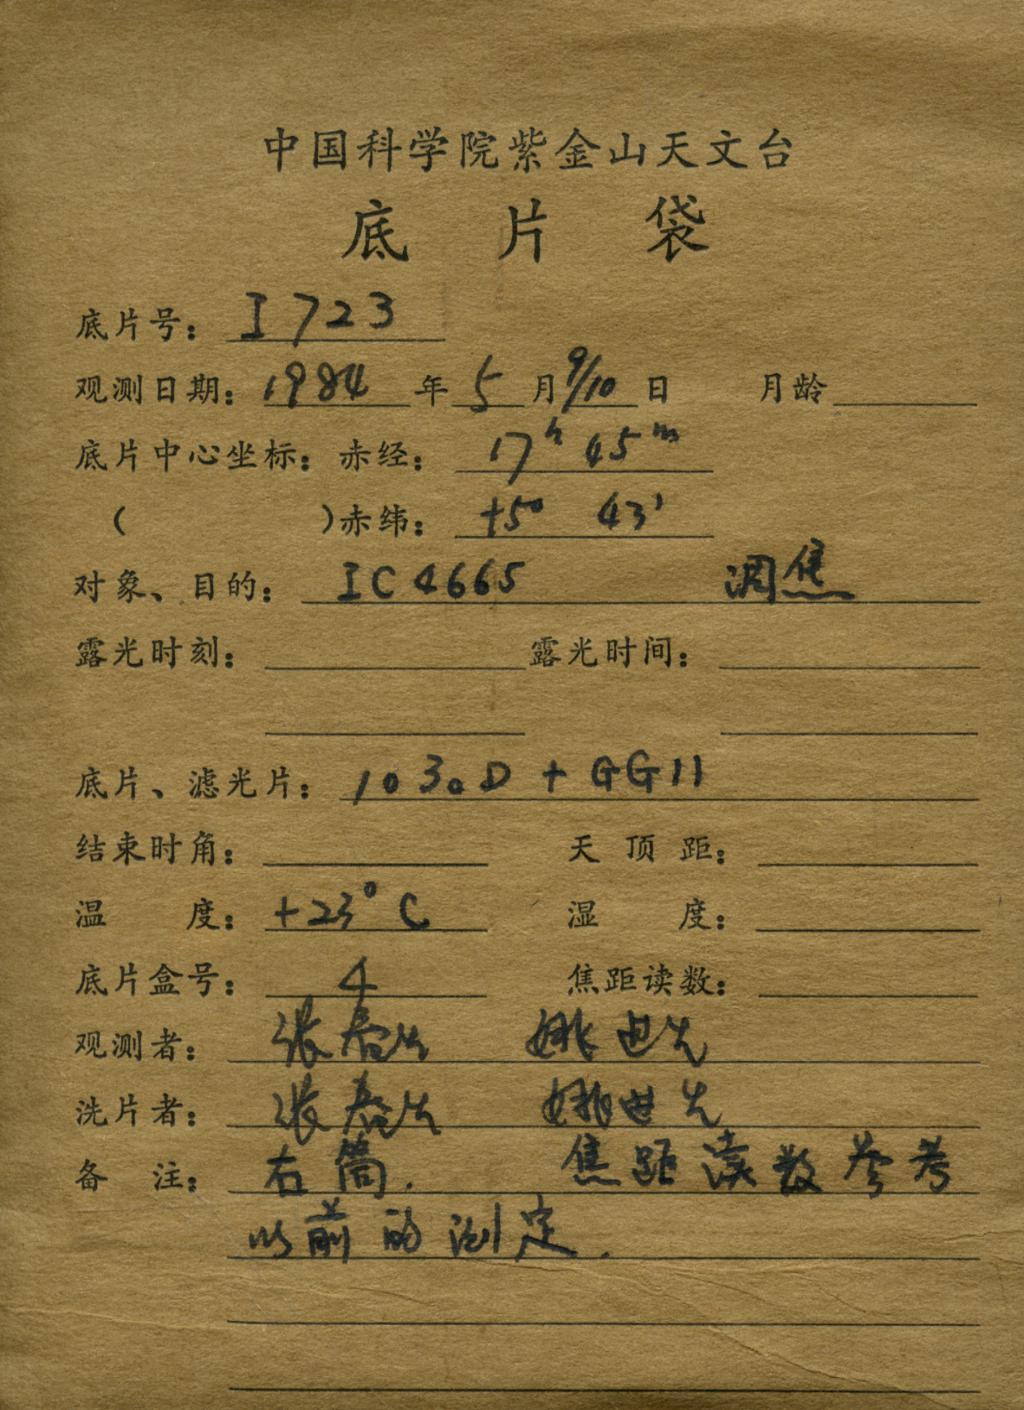 中国科学院紫金山天文台
底片袋
底片号： I 723
观测日期： 1984 年 5 月 9/10 日 月龄
底片中心坐标：赤经： 17h 45m
( )赤纬： +5° 43'
对象、目的： IC 4665 调焦
露光时刻： 露光时间：
底片、滤光片： 103aD + GG11
结束时角： 天顶距：
温度： +23°C 湿度：
底片盒号： 4 焦距读数：
观测者： 张春生 姚进先
洗片者： 张春生 姚进先
备注： 右筒. 焦距读数参考
以前的测定.